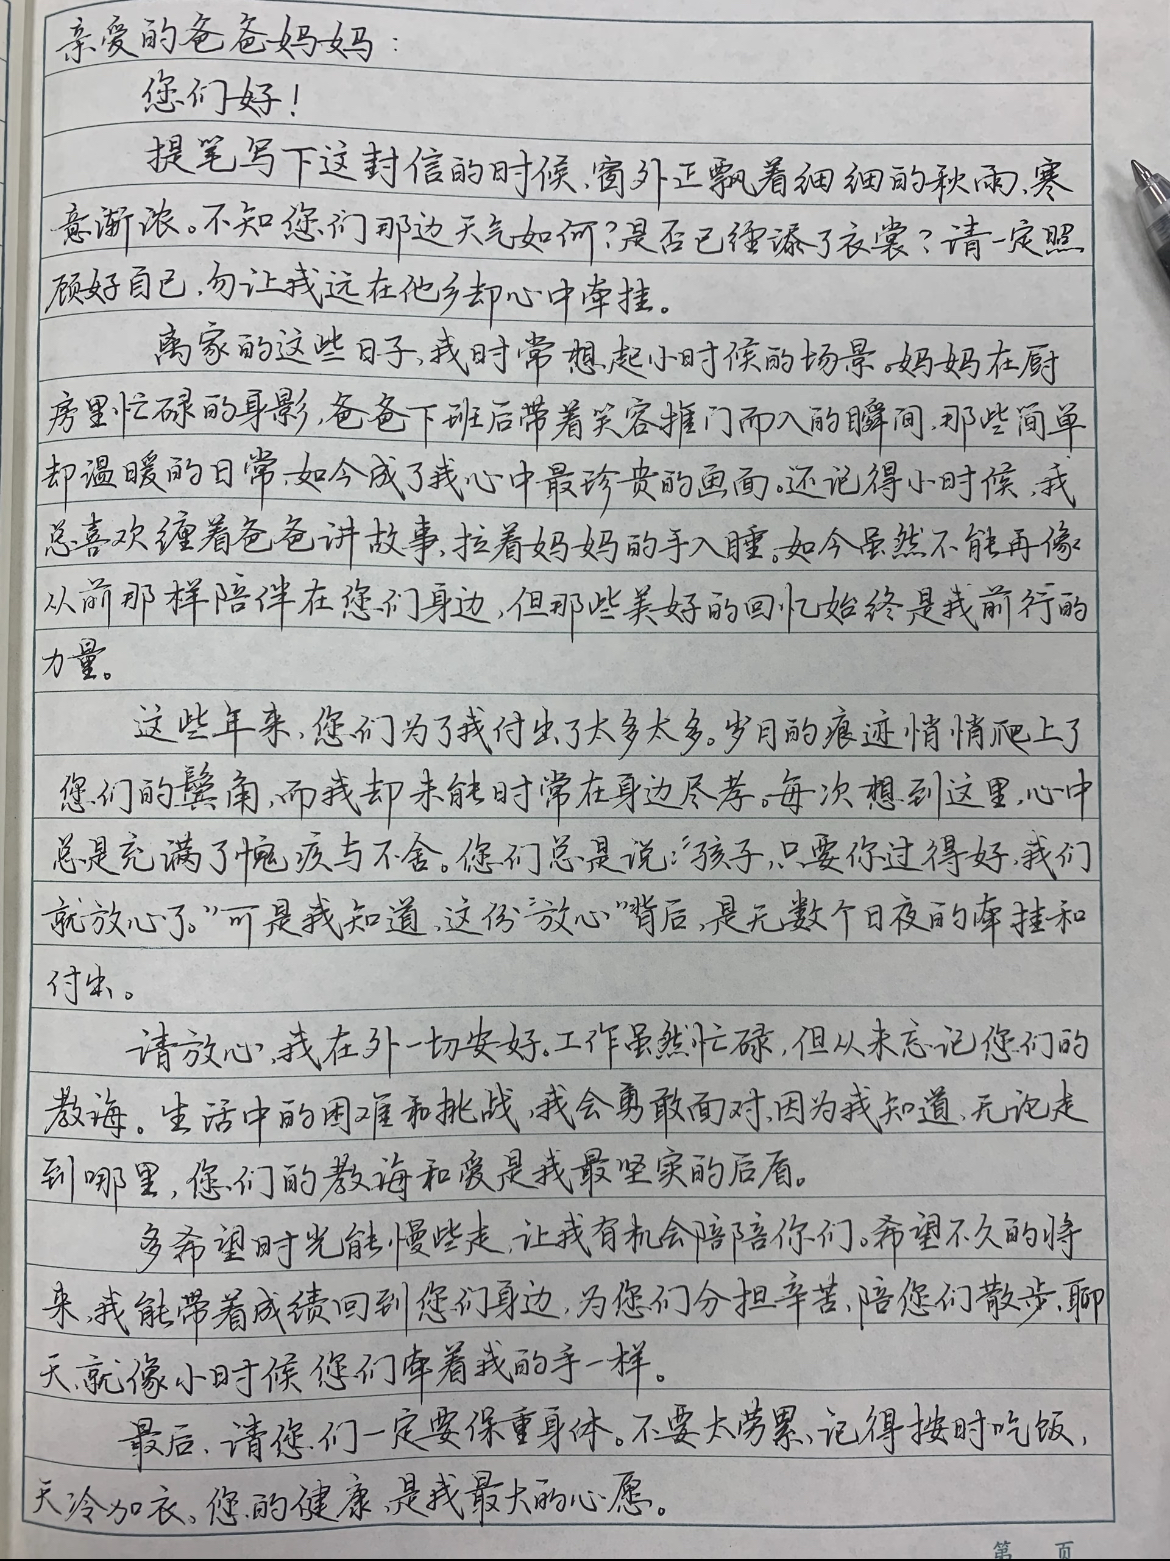 亲爱的爸爸妈妈：
您们好！
提笔写下这封信的时候，窗外正飘着细细的秋雨，寒
意渐浓。不知您们那边天气如何？是否已经添了衣裳？请一定照
顾好自己，勿让我远在他乡却心中牵挂。
离家的这些日子，我时常想起小时候的场景。妈妈在厨
房里忙碌的身影，爸爸下班后带着笑容推门而入的瞬间，那些简单
却温暖的日常，如今成了我心中最珍贵的画面。还记得小时候，我
总喜欢缠着爸爸讲故事，拉着妈妈的手入睡。如今虽然不能再像
从前那样陪伴在您们身边，但那些美好的回忆始终是我前行的
力量。
这些年来，您们为了我付出了太多太多。岁月的痕迹悄悄爬上了
您们的鬓角，而我却未能时常在身边尽孝。每次想到这里，心中
总是充满了愧疚与不舍。您们总是说：“孩子，只要你过得好，我们
就放心了。”可是我知道，这份“放心”背后，是无数个日夜的牵挂和
付出。
请放心，我在外一切安好。工作虽然忙碌，但从未忘记您们的
教诲。生活中的困难和挑战，我会勇敢面对，因为我知道，无论走
到哪里，您们的教诲和爱是我最坚实的后盾。
多希望时光能慢些走，让我有机会陪陪你们。希望不久的将
来，我能带着成绩回到您们身边，为您们分担辛苦，陪您们散步，聊
天，就像小时候您们牵着我的手一样。
最后，请您们一定要保重身体。不要太劳累，记得按时吃饭，
天冷加衣。您的健康，是我最大的心愿。
第 页